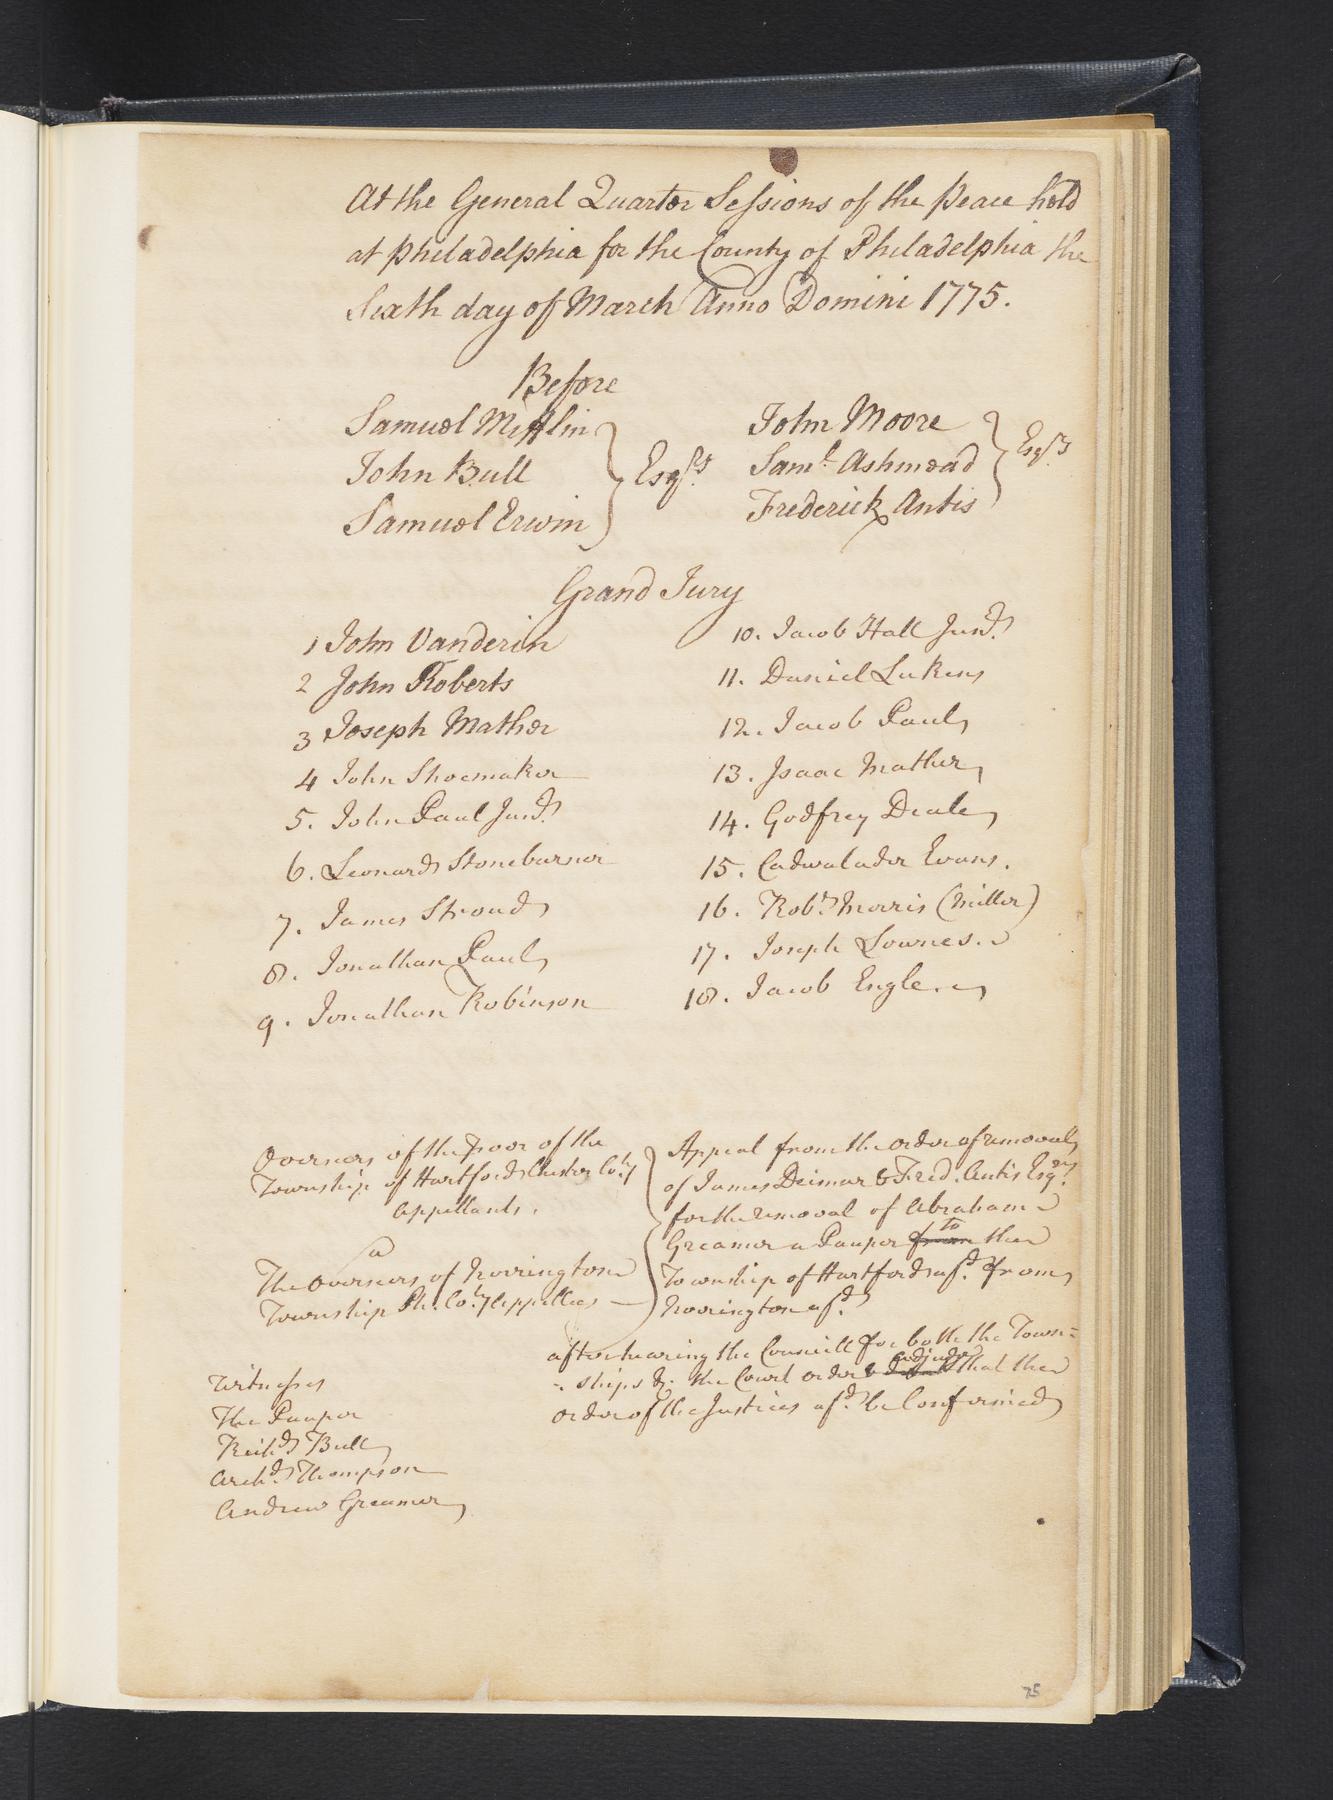 At the General Quarter Sessions of the Peace held
at Philadelphia for the County of Philadelphia the
Sixth day of March Anno Domini 1775.
Before
Samuel Mifflin
John Bull
Samuel Erwin
Esqrs.
John Moore
Saml. Ashmead
Frederick Antis
Esqrs.
Grand Jury
1 John Vanderin
2 John Roberts
3 Joseph Mather
4 John Shoemaker
5. John Paul Junr.
6. Leonard Stoneburner
7. James Stroud
8. Jonathan Paul
9. Jonathan Robinson
10. Jacob Hall Junr.
11. Daniel Lukens
12. Jacob Paul
13. Isaac Mather
14. Godfrey Deale
15. Cadwalader Evans.
16. Robt. Morris (Miller)
17. Joseph Lownes.
18. Jacob Engle.
Overseers of the Poor of the
Township of Hartford Chester Coty
Appellants.
The Overseers of Norrington
Township Ph. Coty Appellees
Appeal from the order of removal
of James Deimar & Fred. Antis Esqrs.
for the removal of Abraham
Greamer a Pauper from to the
Township of Hartford afd. from
Norrington afd.
after hearing the Councill for both the Town=
=ships &. the Court order & adjudge that the
order of the Justices afd. be Confirmed
Witnesses
The Pauper
Richd Bull
Archd. Thompson
Andrew Greamer
75